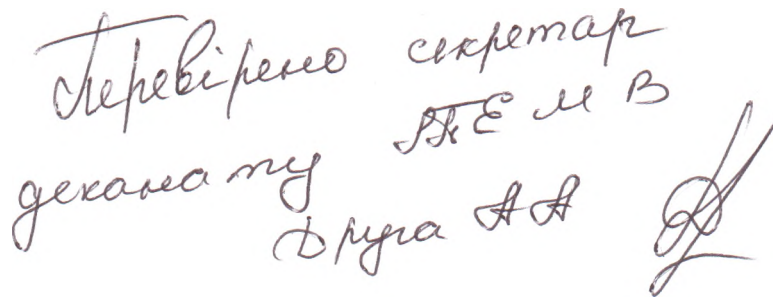 Перевірено секретар
деканату ФЕМВ
Друга АА